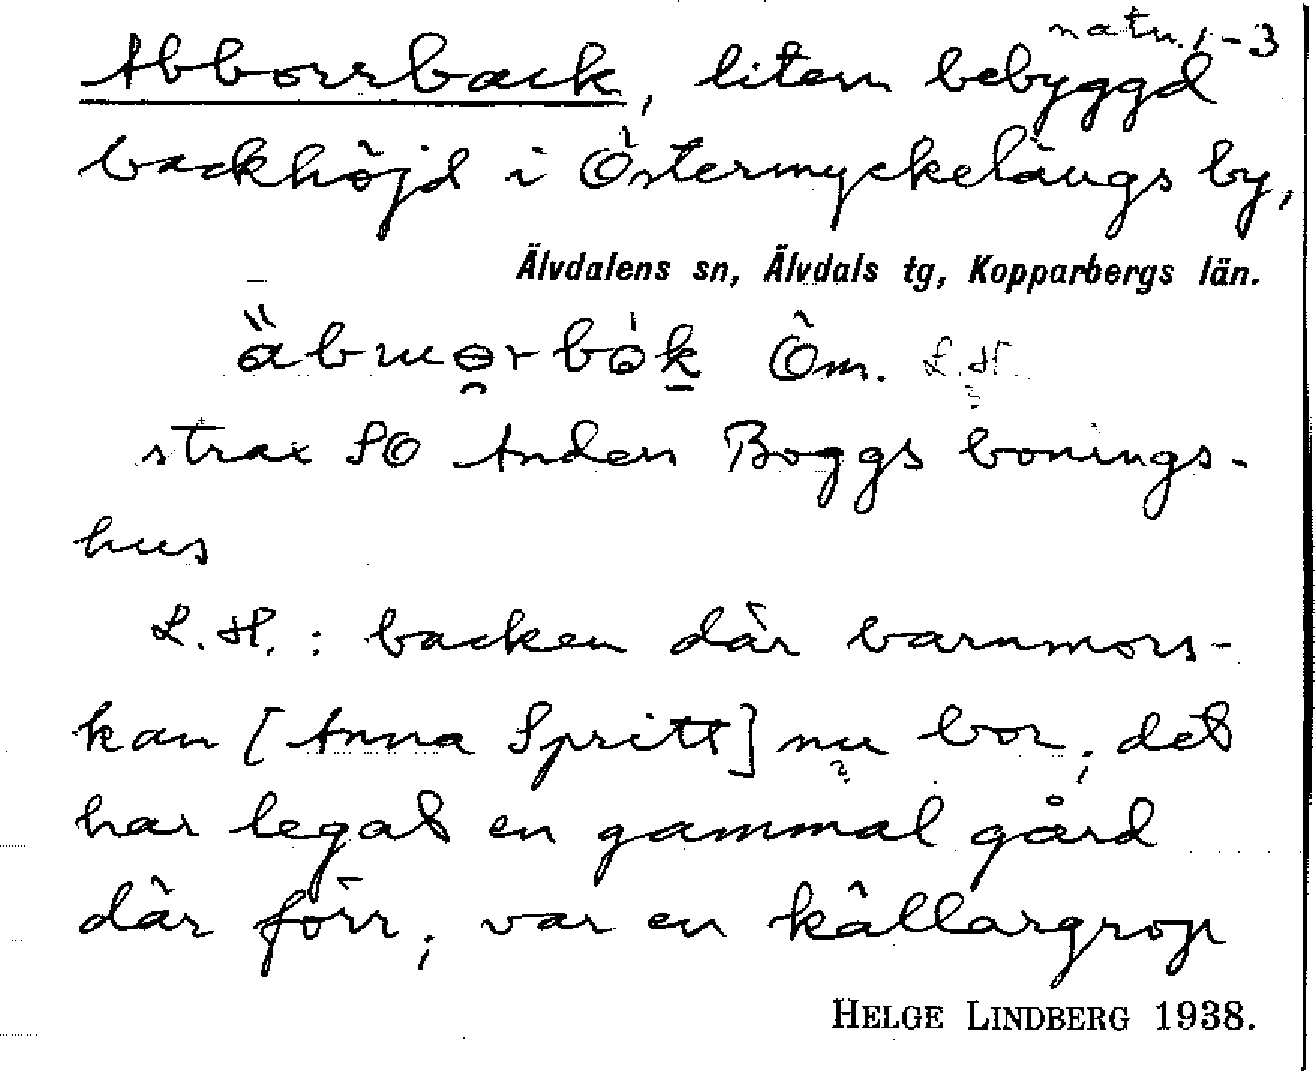 natn. 1-3
Abborrback, liten bebyggd
backhöjd i Östermyckelängs by,
Älvdalens sn, Älvdals tg, Kopparbergs län.
Öm. L.H.
strax SO Anders Boggs bonings-
hus
L.H.: backen där barnmors-
kan [Anna Spritt] nu bor; det
har legat en gammal gård
där förr; var en källargrop
HELGE LINDBERG 1938.